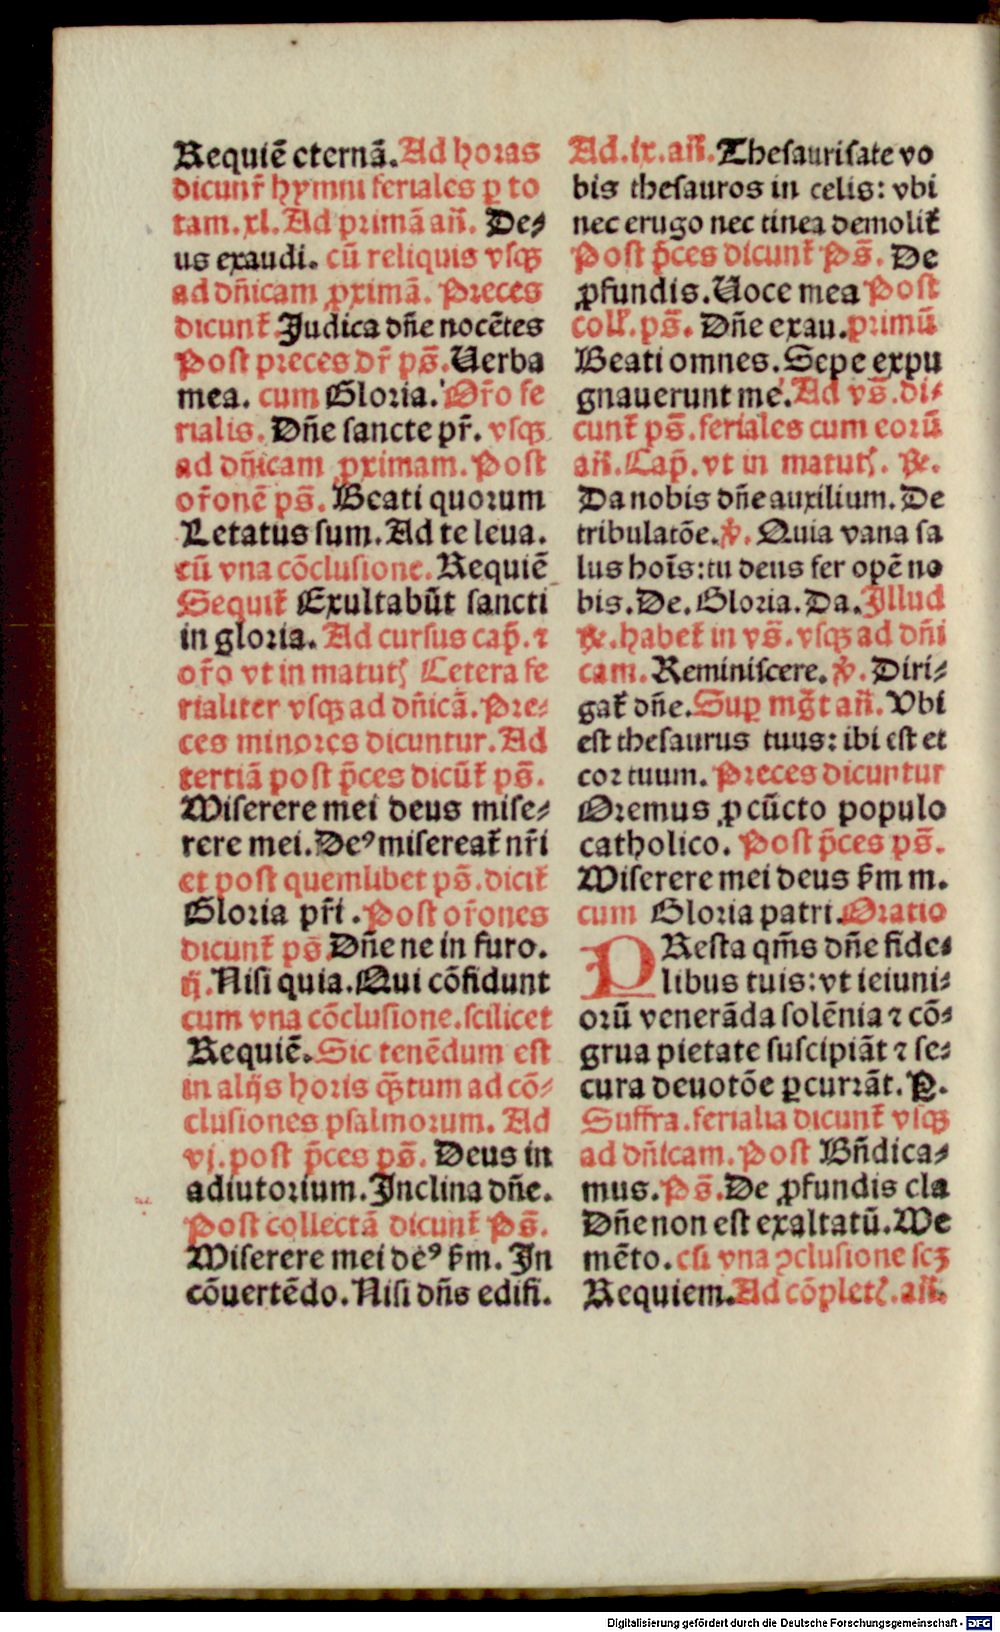 Requiē eternā. Ad horas
dicunt̄ hymni feriales ꝑ to
tam .xl. Ad primā añ. De⸗
us exaudi. cū reliquis vsqꝫ
ad dñicam ꝓximā. Preces
dicunt̄ Judica dñe nocētes
Post preces dr̄ ps̄. Uerba
mea. cum Gloria. Or̄o fe
rialis. Dñe sancte pr̄. vsqꝫ
ad dñicam ꝓximam. Post
or̄onē ps̄. Beati quorum
Letatus sum. Ad te leua.
cū vna cōclusione. Requiē
Sequit̄ Exultabūt sancti
in gloria. Ad cursus cap̄. ⁊
or̄o vt in matut̄ Cetera fe
rialiter vsqꝫ ad dñicā. Pre⸗
ces minores dicuntur. Ad
tertiā post p̄ces dicūt̄ ps̄.
Miserere mei deus mise⸗
rere mei. Deꝰ misereat̄ nr̄i
et post quemlibet ps̄. dicit̄
Gloria pr̄i. Post or̄ones
dicunt̄ ps̄ Dñe ne in furo.
ij. Nisi quia. Qui cōfidunt
cum vna cōclusione. scilicet
Requiē. Sic tenēdum est
in alijs horis qͣtum ad cō⸗
clusiones psalmorum. Ad
vj. post p̄ces ps̄. Deus in
adiutorium. Inclina dñe.
Post collectā dicunt̄ Ps̄.
Miserere mei deꝰ ẜm. In
cōuertēdo. Nisi dñs edifi.
Ad .ix. añ. Thesaurisate vo
bis thesauros in celis: vbi
nec erugo nec tinea demolit̄
Post p̄ces dicunt̄ Ps̄. De
ꝓfundis. Uoce mea Post
coll̄. ps̄. Dñe exau. primū
Beati omnes. Sepe expu
gnauerunt me. Ad vs̄. di⸗
cunt̄ ps̄. feriales cum eorū
añ. Cap̄. vt in matut̄. ℟.
Da nobis dñe auxilium. De
tribulatōe. ℣. Quia vana sa
lus hoīs: tu deus fer opē no
bis. De. Gloria. Da. Illud
℟. habet̄ in vs̄. vsqꝫ ad dñi
cam. Reminiscere. ℣. Diri⸗
gat̄ dñe. Suꝑ mḡt añ. Vbi
est thesaurus tuus: ibi est et
cor tuum. Preces dicuntur
Oremus ꝓ cūcto populo
catholico. Post p̄ces ps̄.
Miserere mei deus ẜm m.
cum Gloria patri. Oratio
PResta qm̄s dñe fide⸗
libus tuis: vt ieiuni⸗
orū venerāda solēnia ⁊ cō⸗
grua pietate suscipiāt ⁊ se⸗
cura deuotōe ꝑcurrāt. P.
Suffra. ferialia dicunt̄ vsqꝫ
ad dñicam. Post Bñdica⸗
mus. Ps̄. De ꝓfundis cla
Dñe non est exaltatū. Me
mēto. cū vna ꝯclusione scꝫ
Requiem. Ad cōplet̄. añ.
Digitalisierung gefördert durch die Deutsche Forschungsgemeinschaft - DFG